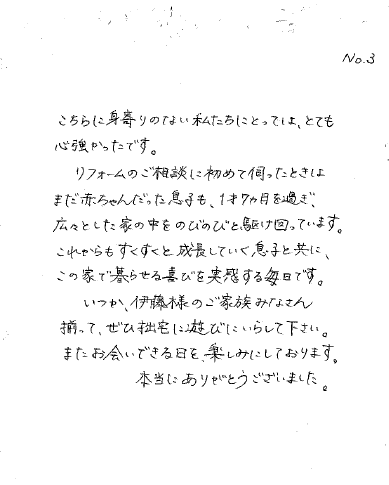 No.3
こちらに身寄りのない私たちにとっては、とても
心強かったです。
リフォームのご相談に初めて伺ったときは
まだ赤ちゃんだった息子も、1才7ヵ月を過ぎ、
広々とした家の中をのびのびと駆け回っています。
これからもすくすくと成長していく息子と共に、
この家で暮らせる喜びを実感する毎日です。
いつか、伊藤様のご家族みなさん
揃って、ぜひ拙宅に遊びにいらして下さい。
またお会いできる日を、楽しみにしております。
本当にありがとうございました。